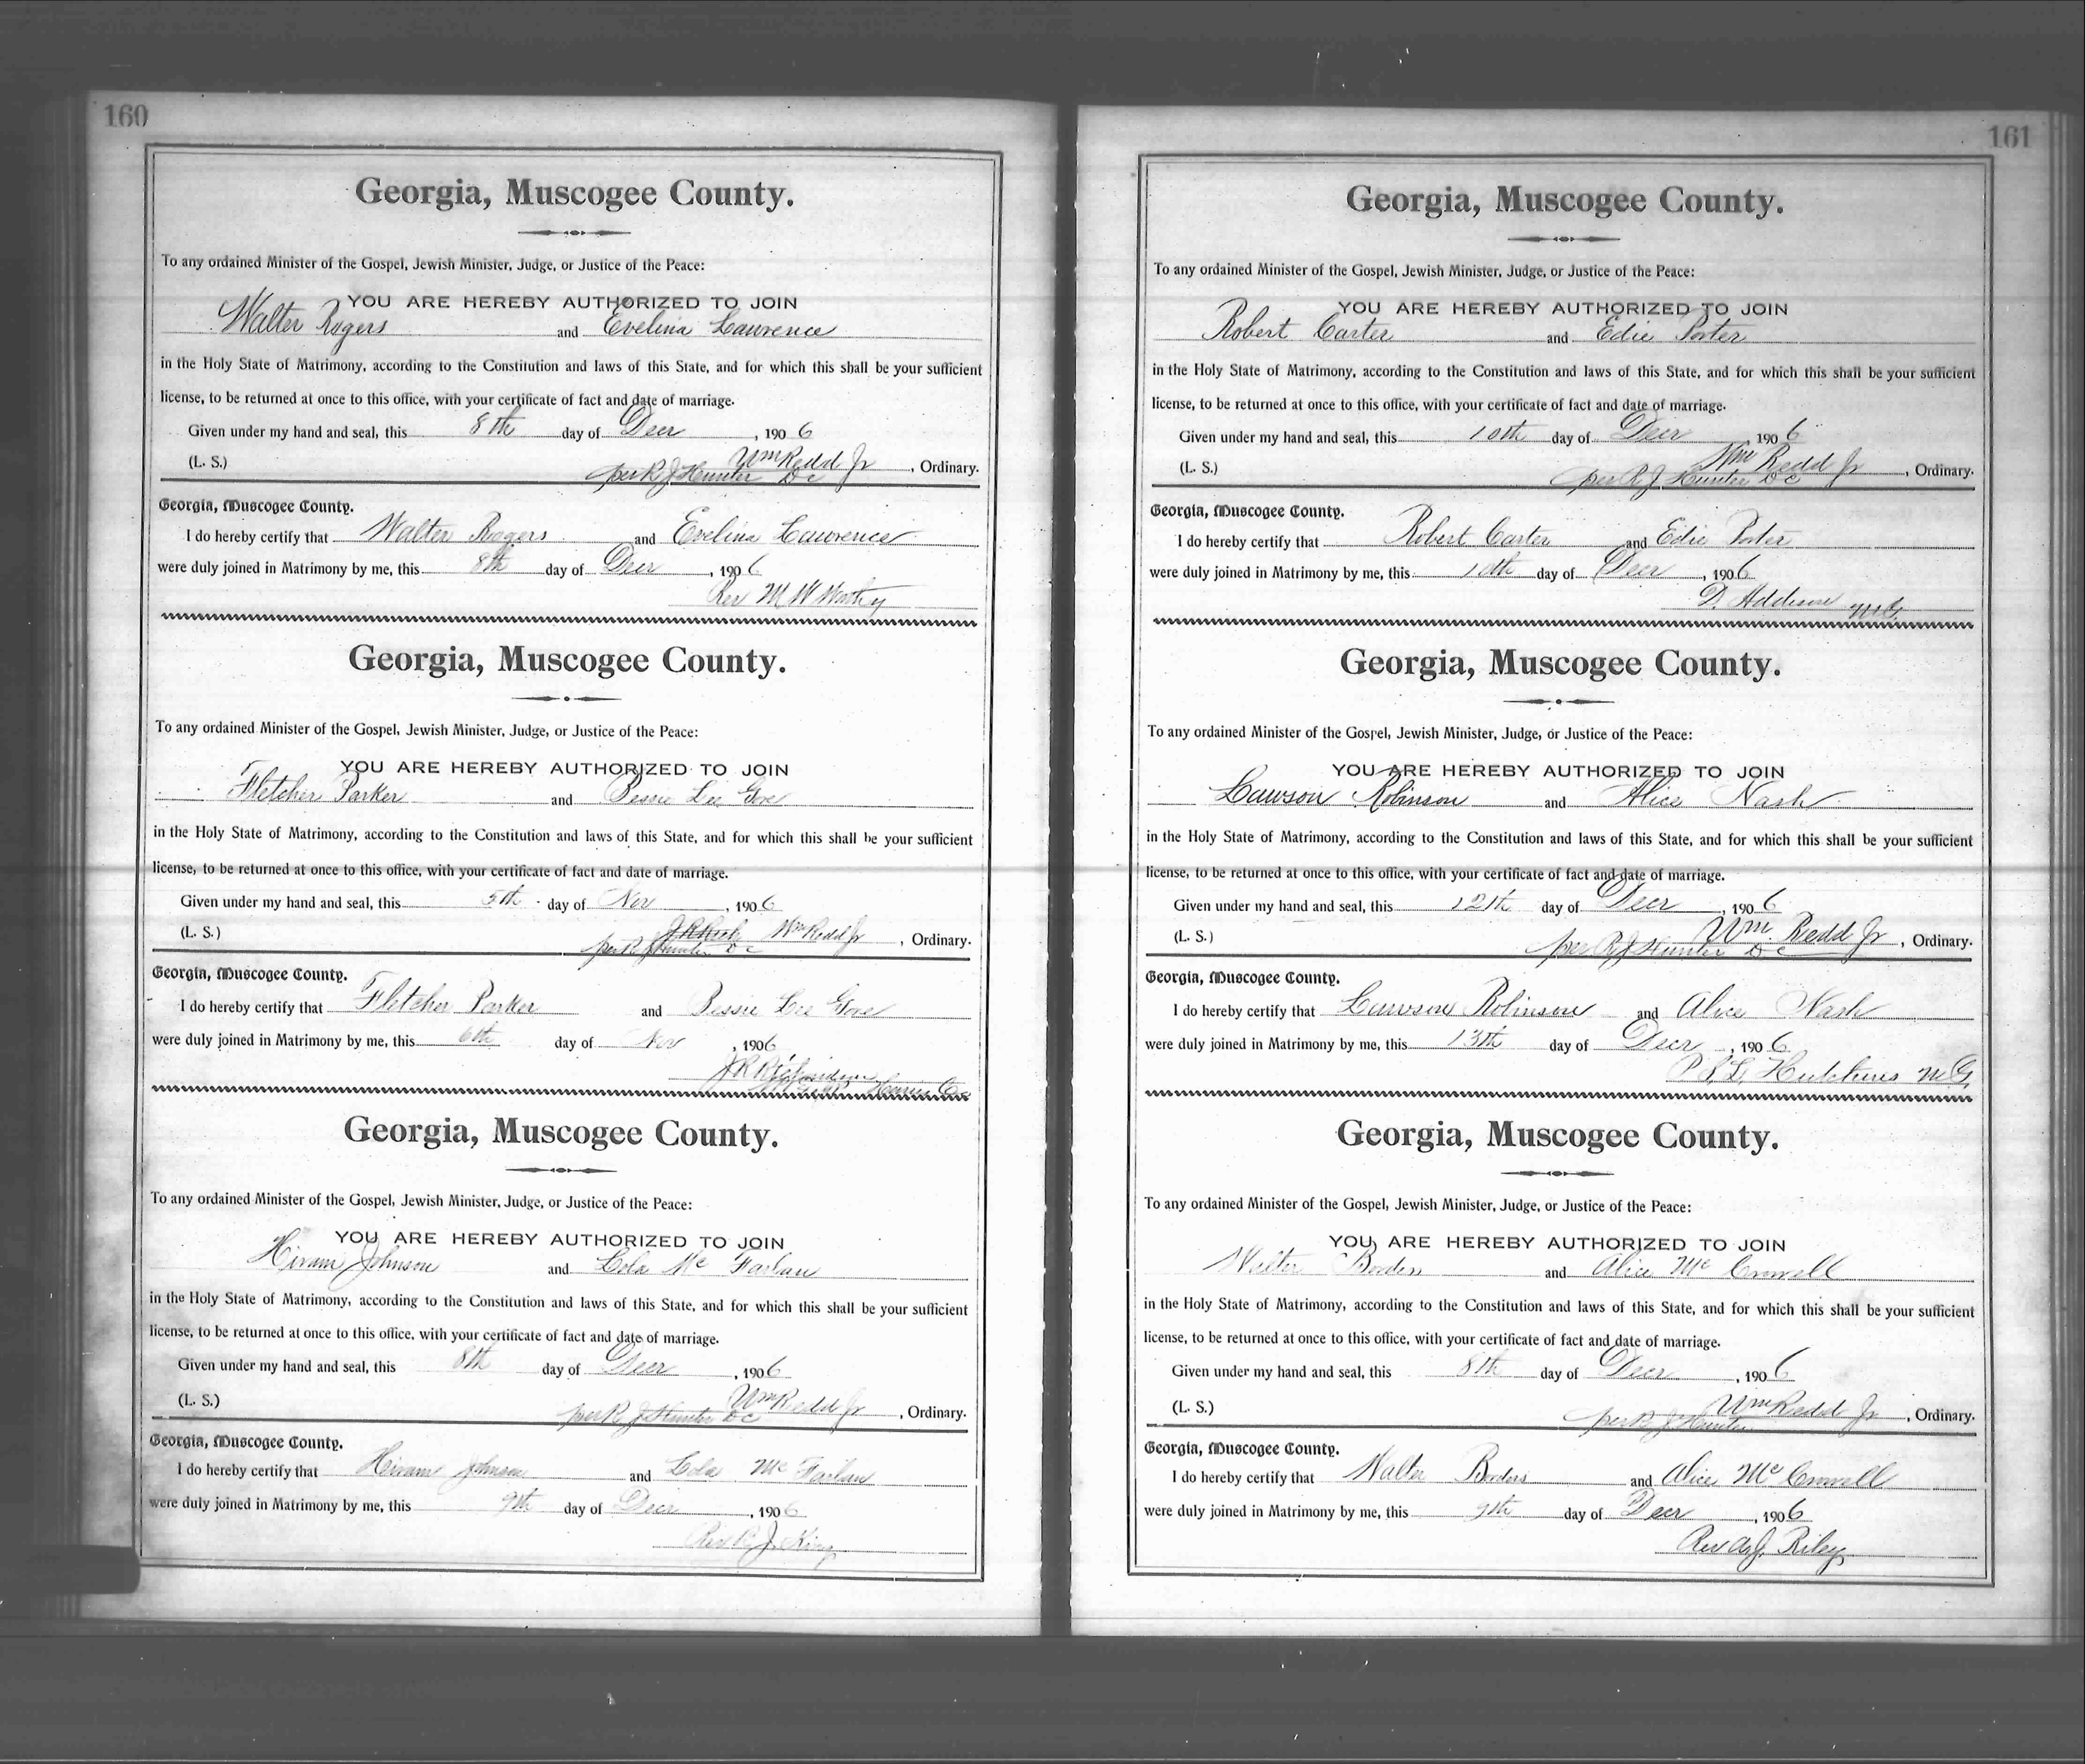 160
Georgia, Muscogee County.
To any ordained Minister of the Gospel, Jewish Minister, Judge, or Justice of the Peace:
YOU ARE HEREBY AUTHORIZED TO JOIN
Walter Rogers and Evelina Lawrence
in the Holy State of Matrimony, according to the Constitution and laws of this State, and for which this shall be your sufficient
license, to be returned at once to this office, with your certificate of fact and date of marriage.
Given under my hand and seal, this 8th day of Decr, 1906
(L. S.) Wm Redd Jr, Ordinary.
per R J Hunter D C
Georgia, Muscogee County.
I do hereby certify that Walter Rogers and Evelina Lawrence
were duly joined in Matrimony by me, this 8th day of Decr, 1906
Rev M W
Georgia, Muscogee County.
To any ordained Minister of the Gospel, Jewish Minister, Judge, or Justice of the Peace:
YOU ARE HEREBY AUTHORIZED TO JOIN
Fletcher Parker and Bessie Lee Gore
in the Holy State of Matrimony, according to the Constitution and laws of this State, and for which this shall be your sufficient
license, to be returned at once to this office, with your certificate of fact and date of marriage.
Given under my hand and seal, this 5th day of Nov, 1906
(L. S.) Wm Redd Jr, Ordinary.
per R J Hunter D C
Georgia, Muscogee County.
I do hereby certify that Fletcher Parker and Bessie Lee Gore
were duly joined in Matrimony by me, this 6th day of Nov, 1906
J R Richardson
Harris Co
Georgia, Muscogee County.
To any ordained Minister of the Gospel, Jewish Minister, Judge, or Justice of the Peace:
YOU ARE HEREBY AUTHORIZED TO JOIN
Hiram Johnson and Lola Mc Farlan
in the Holy State of Matrimony, according to the Constitution and laws of this State, and for which this shall be your sufficient
license, to be returned at once to this office, with your certificate of fact and date of marriage.
Given under my hand and seal, this 8th day of Decr, 1906
(L. S.) Wm Redd Jr, Ordinary.
per R J Hunter D C
Georgia, Muscogee County.
I do hereby certify that Hiram Johnson and Lola Mc Farlan
were duly joined in Matrimony by me, this 9th day of Decr, 1906
Rev R. J. King
161
Georgia, Muscogee County.
To any ordained Minister of the Gospel, Jewish Minister, Judge, or Justice of the Peace:
YOU ARE HEREBY AUTHORIZED TO JOIN
Robert Carter and Edie Porter
in the Holy State of Matrimony, according to the Constitution and laws of this State, and for which this shall be your sufficient
license, to be returned at once to this office, with your certificate of fact and date of marriage.
Given under my hand and seal, this 10th day of Decr, 1906
(L. S.) Wm Redd Jr, Ordinary.
per R J Hunter D C
Georgia, Muscogee County.
I do hereby certify that Robert Carter and Edie Porter
were duly joined in Matrimony by me, this 10th day of Decr, 1906
D. Addison M.G.
Georgia, Muscogee County.
To any ordained Minister of the Gospel, Jewish Minister, Judge, or Justice of the Peace:
YOU ARE HEREBY AUTHORIZED TO JOIN
Lawson Robinson and Alice Nash
in the Holy State of Matrimony, according to the Constitution and laws of this State, and for which this shall be your sufficient
license, to be returned at once to this office, with your certificate of fact and date of marriage.
Given under my hand and seal, this 12th day of Decr, 1906
(L. S.) Wm. Redd Jr, Ordinary.
per R J Hunter D C
Georgia, Muscogee County.
I do hereby certify that Lawson Robinson and Alice Nash
were duly joined in Matrimony by me, this 13th day of Decr, 1906
P. S. L. Hutchins M.G.
Georgia, Muscogee County.
To any ordained Minister of the Gospel, Jewish Minister, Judge, or Justice of the Peace:
YOU ARE HEREBY AUTHORIZED TO JOIN
Walter Borders and Alice Mc Crowell
in the Holy State of Matrimony, according to the Constitution and laws of this State, and for which this shall be your sufficient
license, to be returned at once to this office, with your certificate of fact and date of marriage.
Given under my hand and seal, this 8th day of Decr, 1906
(L. S.) Wm Redd Jr, Ordinary.
per R J Hunter
Georgia, Muscogee County.
I do hereby certify that Walter Borders and Alice Mc Crowell
were duly joined in Matrimony by me, this 9th day of Decr, 1906
Rev A. J. Riley